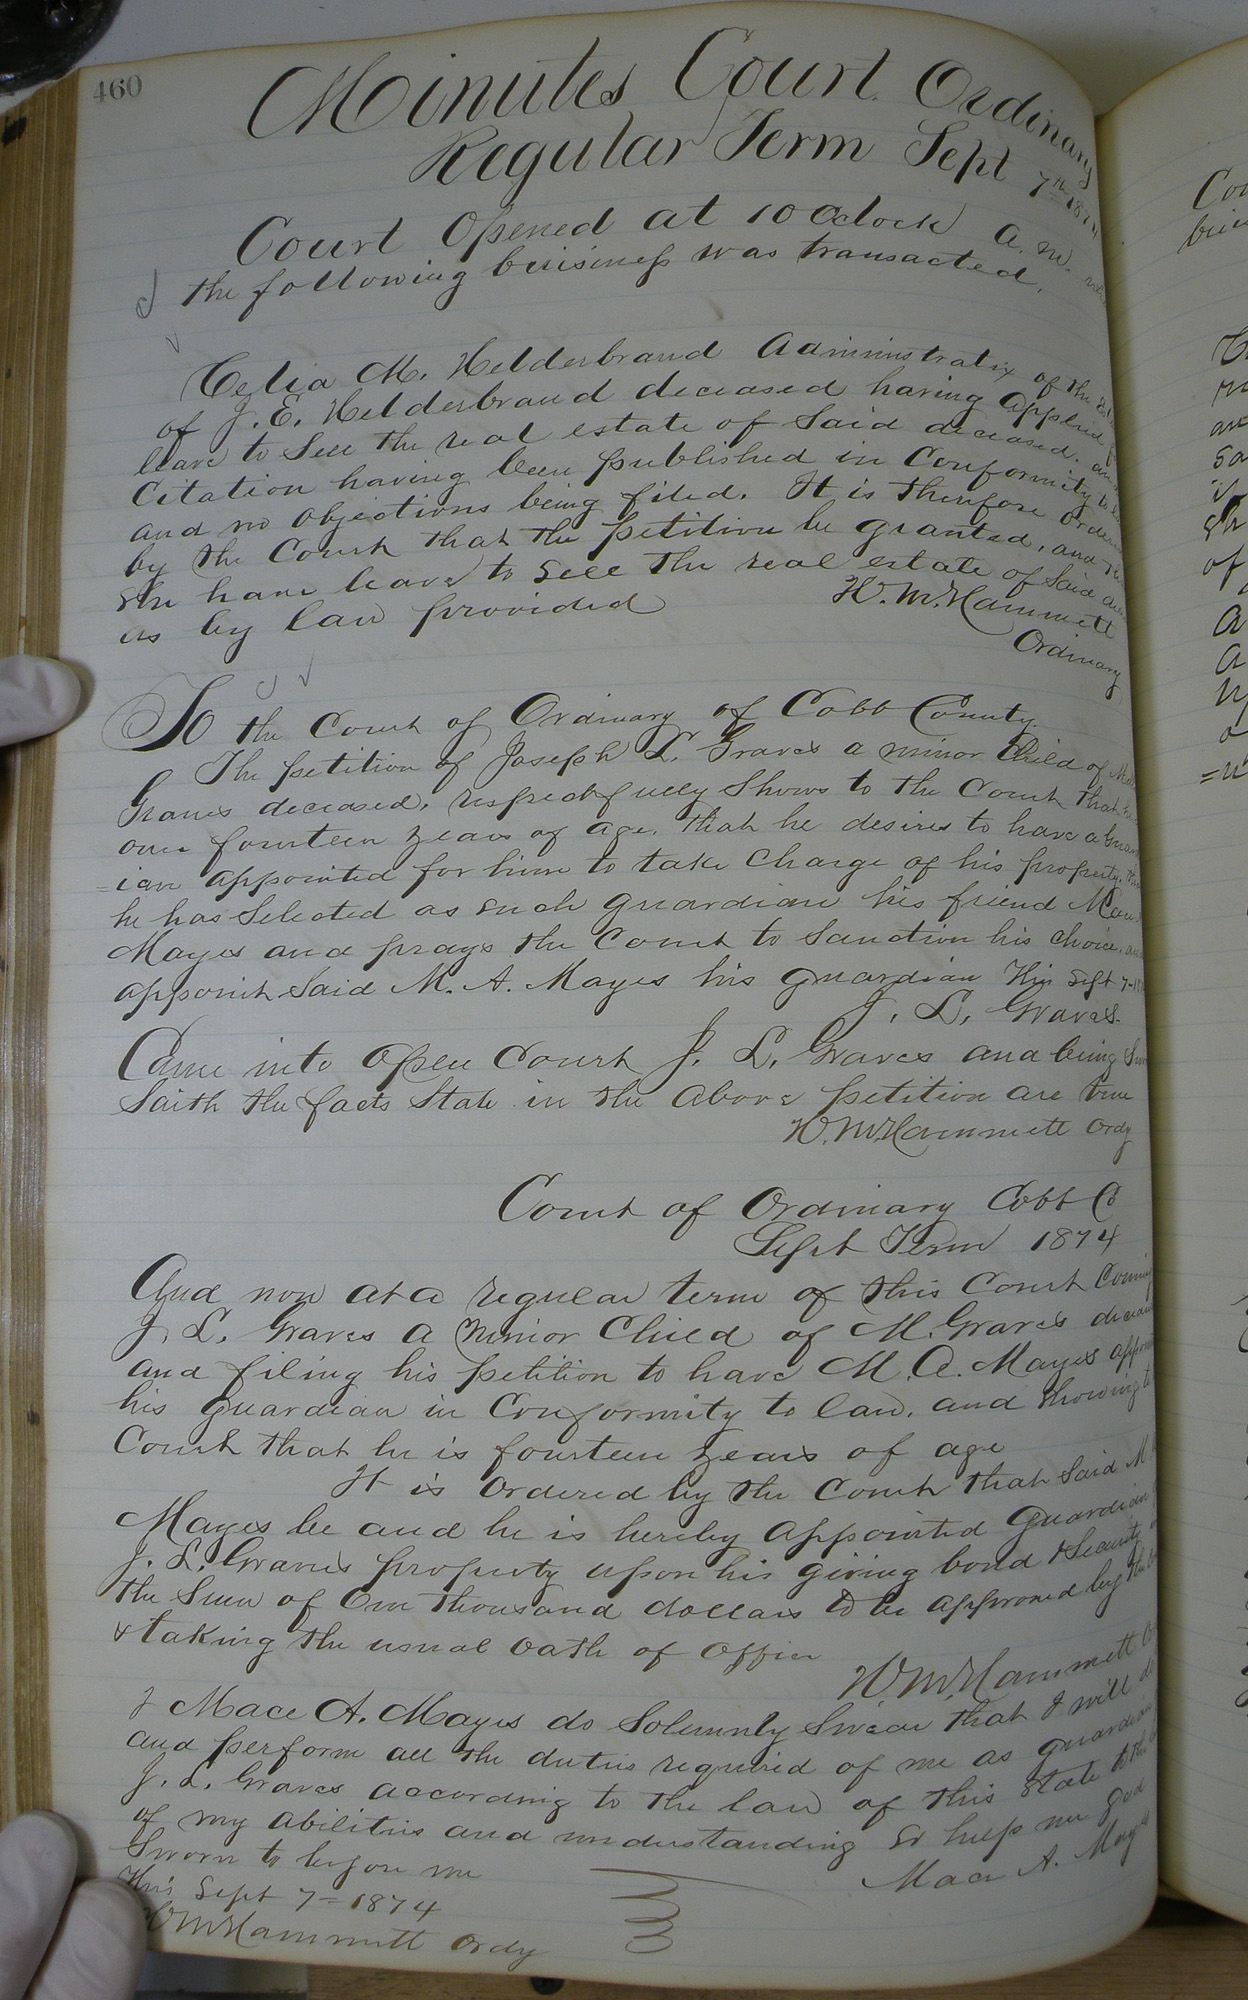 460
Minutes Court Ordinary
Regular Term Sept 7th 1874
Court Opened at 10 Oclock A. M.
the following buisiness was transacted.
Celia M. Helderbrand Administratrix of the
of J. E. Helderbrand deceased having applied
leave to Sell the real estate of Said deceased. and
Citation having been published in Conformity to
and no objections being filed. It is therefore ordered
by the Court that the petition be granted, and
She have leave to Sell the real estate of Said
as by law provided
W. M. Hammett
Ordinary
To the Court of Ordinary of Cobb County
The petition of Joseph L. Graves a minor Child of
Graves deceased, respectfully Shows to the Court that
over fourteen years of age. that he desires to have a Guard
=ian appointed for him to take Charge of his property.
he has Selected as such guardian his friend
Mayes and prays the Court to Sanction his choice.
appoint Said M. A. Mayes his guardian This Sept 7
J. L. Graves
Came into open Court J. L. Graves and being
Saith the facts State in the above petition are true
W. M. Hammett Ordy
Court of Ordinary Cobb Co
Sept Term 1874
And now at a regular term of this Court Coming
J. L. Graves a minor Child of M. Graves
and filing his petition to have M. A. Mayes
his guardian in Conformity to law. and Showing
Court that he is fourteen years of age
It is Ordered by the Court that Said M.
Mayes be and he is hereby appointed Guardian
J. L. Graves property upon his giving bond & Security
the Sum of One thousand dollars to be approved by
& taking the usual oath of office
W. M. Hammett
I Mace A. Mayes do Solemnly Swear that I will
and perform all the duties required of me as guardian
J. L. Graves according to the law of this State to the
of my abilities and understanding So help me God
Sworn to before me
Mace A. Mayes
This Sept 7= 1874
W M Hammett Ordy